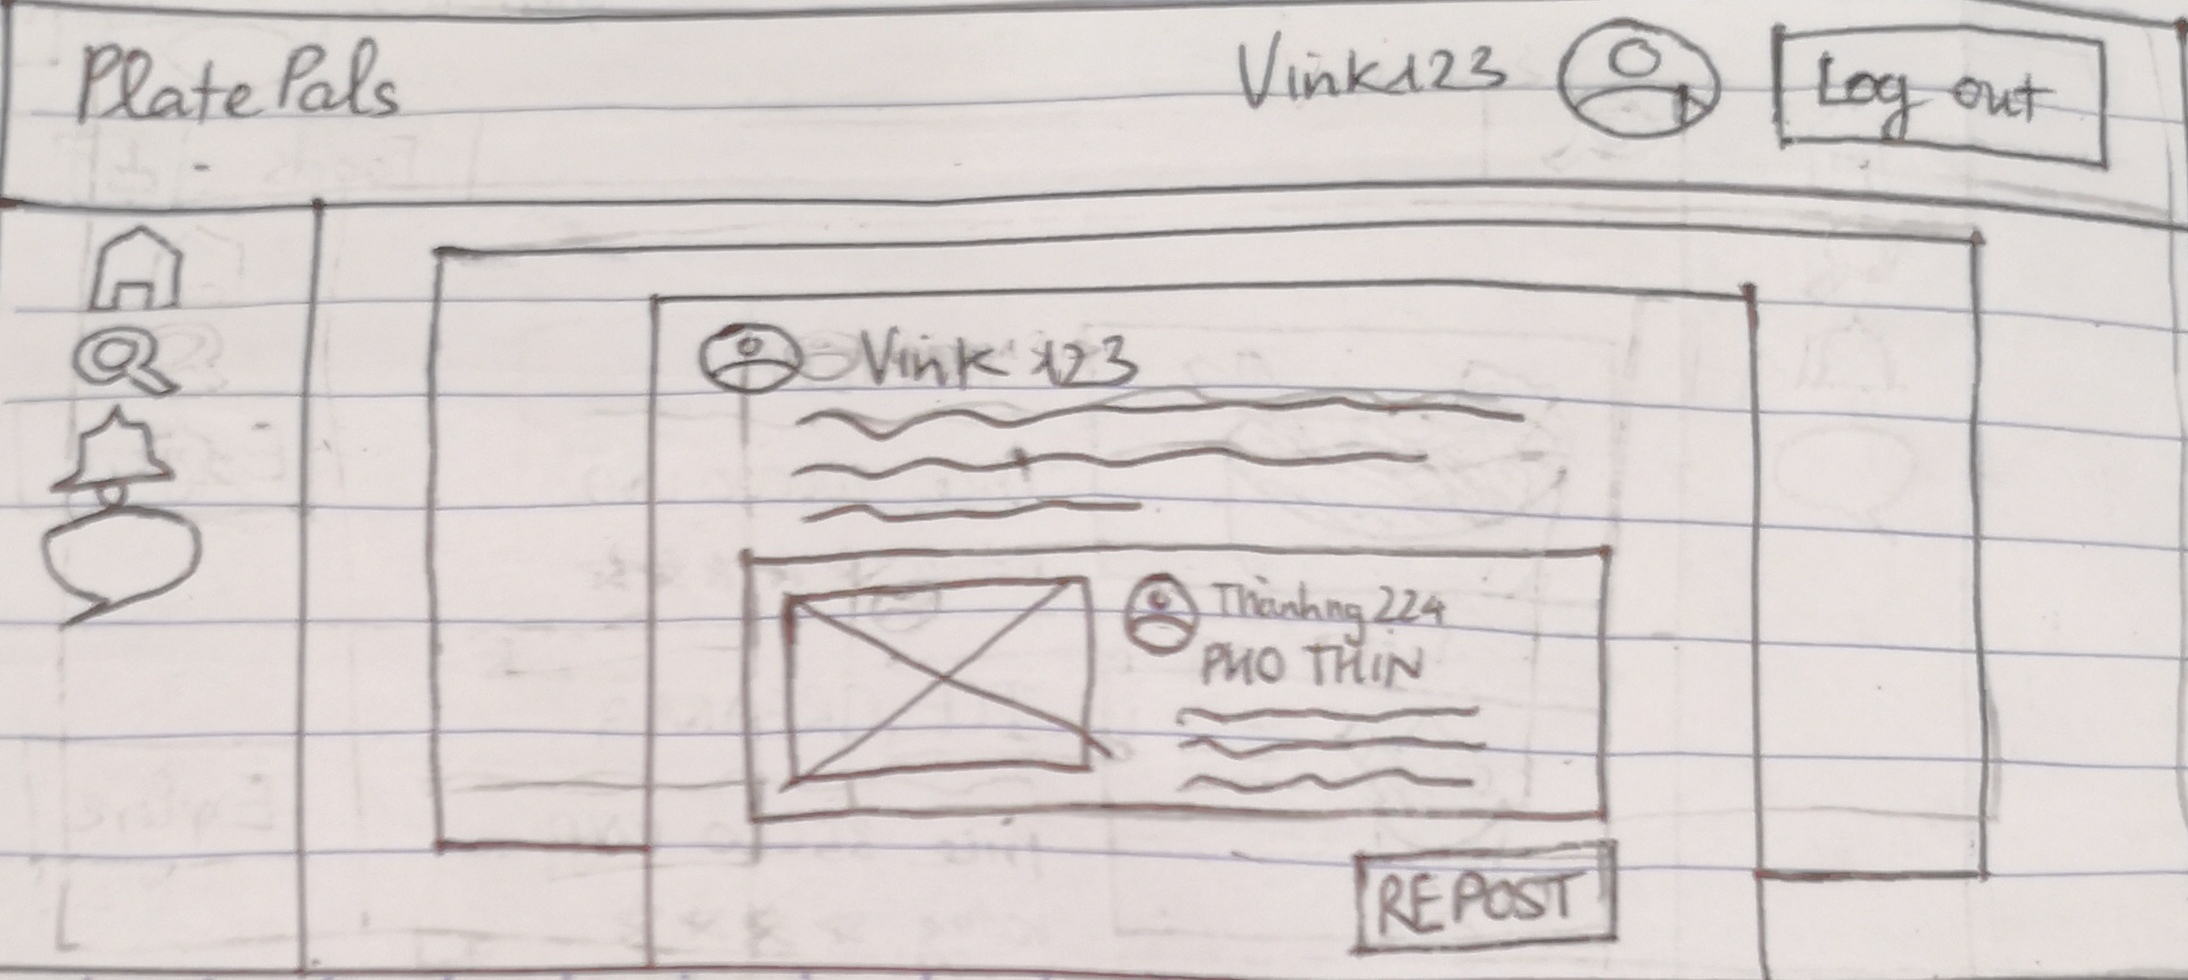 Plate Pals
Vink123
Log out
Vink 123
Thanhng 224
PHO THIN
REPOST